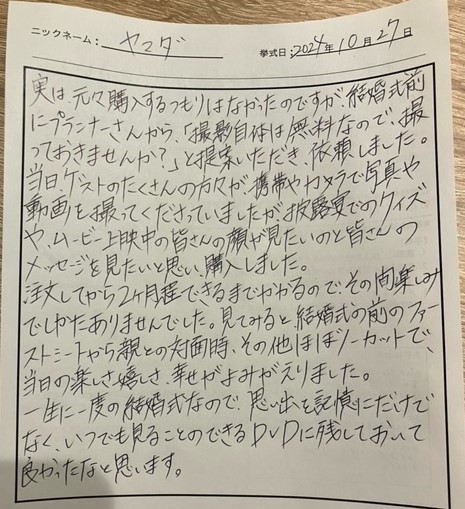 ニックネーム: ヤマダ 挙式日: 2024年10月27日
実は、元々購入するつもりはなかったのですが、結婚式前
にプランナーさんから、「撮影自体は無料なので、撮
っておきませんか?」と提案いただき、依頼しました。
当日、ゲストのたくさんの方々が、携帯やカメラで写真や
動画を撮ってくださっていましたが、披露宴でのクイズ
や、ムービー上映中の皆さんの顔が見たいのと皆さんの
メッセージを見たいと思い、購入しました。
注文してから2ヶ月程できるまでかかるので、その間楽しみ
でしかたありませんでした。見てみると、結婚式の前のファー
ストミートから親との対面時、その他ほぼノーカットで、
当日の楽しさ嬉しさ、幸せがよみがえりました。
一生に一度の結婚式なので、思い出と記憶にだけで
なく、いつでも見ることのできるDVDに残しておいて
良かったなと思います。